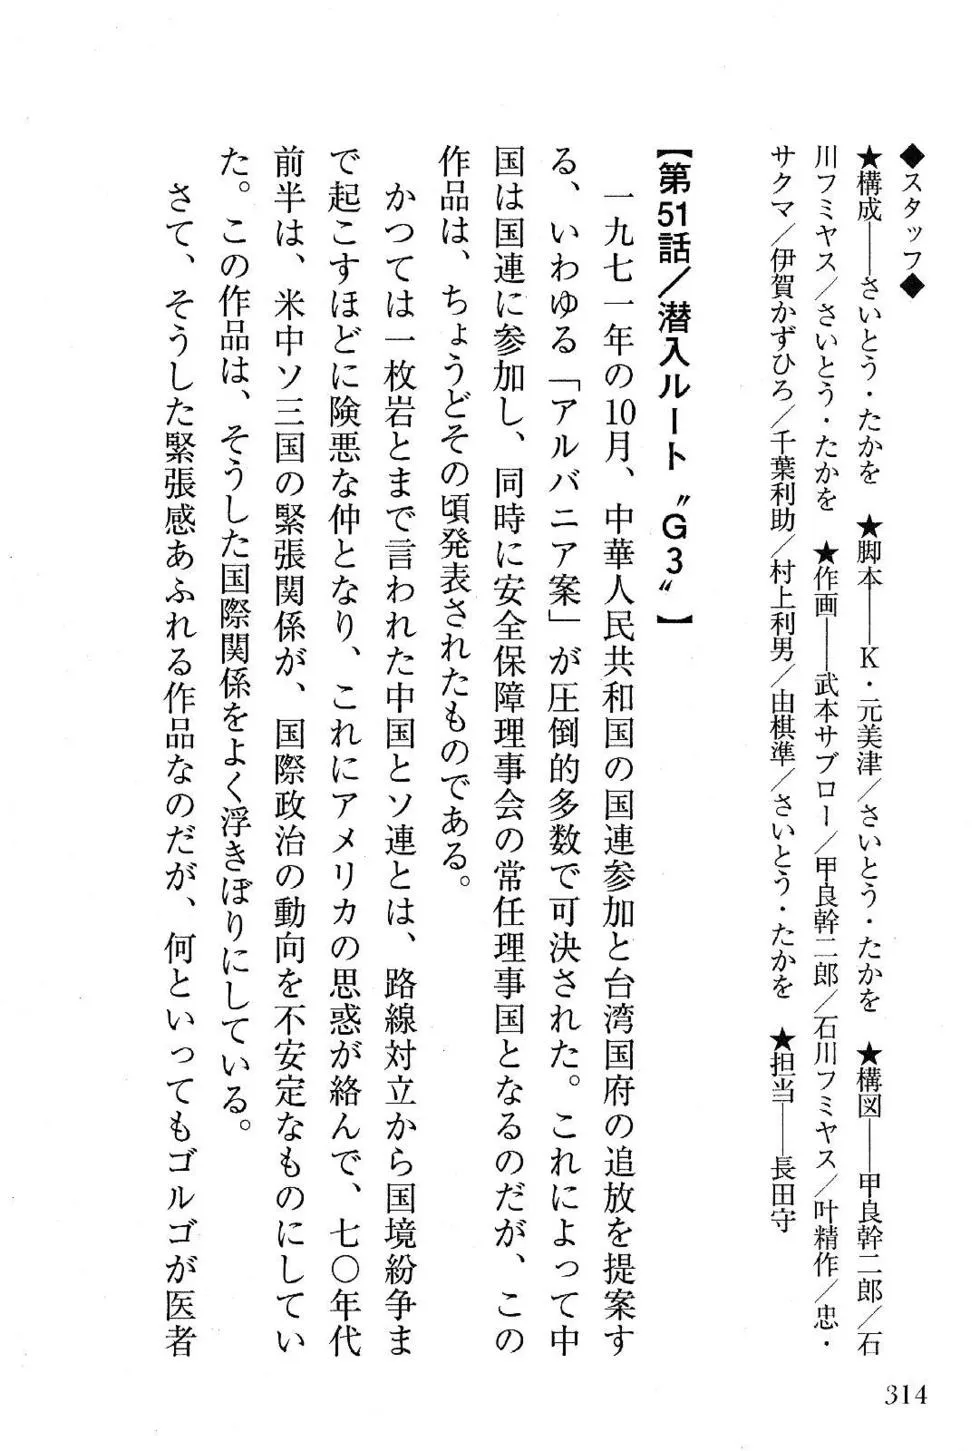 ◆スタッフ◆
★構成――さいとう・たかを　★脚本――K・元美津／さいとう・たかを　★構図――甲良幹二郎／石
川フミヤス／さいとう・たかを　★作画――武本サブロー／甲良幹二郎／石川フミヤス／叶精作／忠・
サクマ／伊賀かずひろ／千葉利助／村上利男／由棋準／さいとう・たかを　★担当――長田守
【第51話／潜入ルート〝G3〟】
一九七一年の10月、中華人民共和国の国連参加と台湾国府の追放を提案す
る、いわゆる「アルバニア案」が圧倒的多数で可決された。これによって中
国は国連に参加し、同時に安全保障理事会の常任理事国となるのだが、この
作品は、ちょうどその頃発表されたものである。
かつては一枚岩とまで言われた中国とソ連とは、路線対立から国境紛争ま
で起こすほどに険悪な仲となり、これにアメリカの思惑が絡んで、七〇年代
前半は、米中ソ三国の緊張関係が、国際政治の動向を不安定なものにしてい
た。この作品は、そうした国際関係をよく浮きぼりにしている。
さて、そうした緊張感あふれる作品なのだが、何といってもゴルゴが医者
314